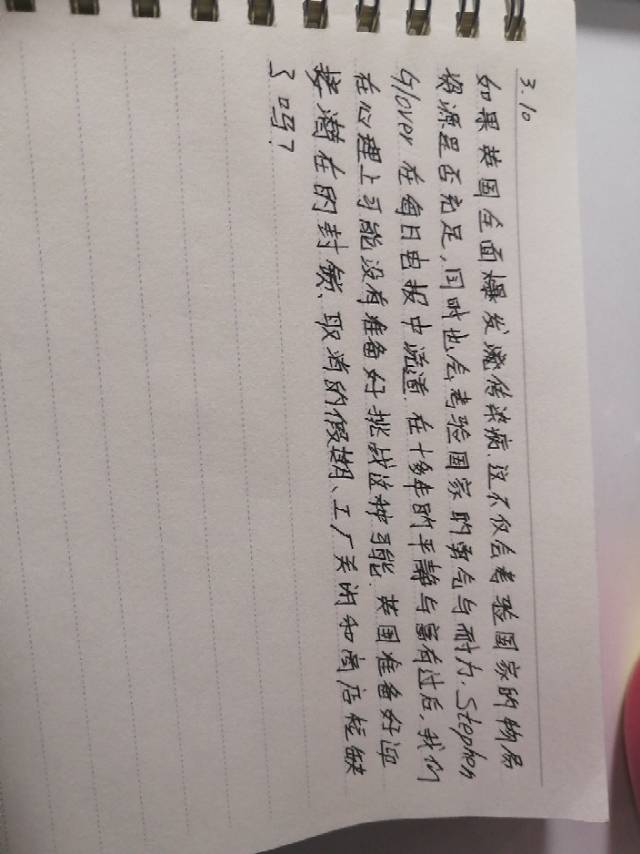 3.10
如果英国全面爆发流传染病.这不仅会考验国家的物局
资源是否充足,同时也会考验国家的勇气与耐力.Stephen
Glover 在每日电报中 道.在十多年的平静与富有过后,我们
在心理上可能没有准备好挑战这种可能.英国准备好迎
接潜在的封锁、取消的假期、工厂关闭和商店短缺
了吗?